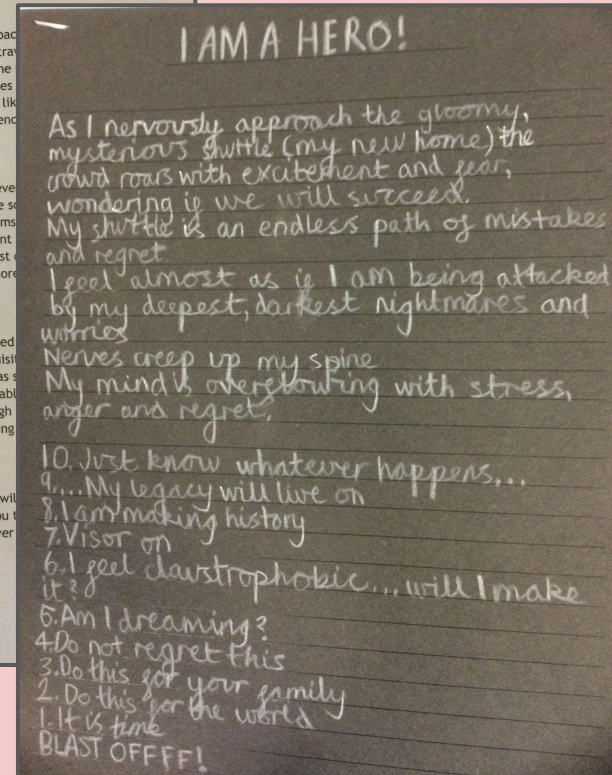 I AM A HERO!
As I nervously approach the gloomy,
mysterious shuttle (my new home) the
crowd roars with excitement and fear,
wondering if we will succeed.
My shuttle is an endless path of mistakes
and regret
I feel almost as if I am being attacked
by my deepest, darkest nightmares and
worries
Nerves creep up my spine
My mind is overflowing with stress,
anger and regret.
10. Just know whatever happens...
9. ...My legacy will live on
8. I am making history
7. Visor on
6. I feel claustrophobic... will I make
it?
5. Am I dreaming?
4. Do not regret this
3. Do this for your family
2. Do this for the world
1. It is time
BLAST OFFFF!